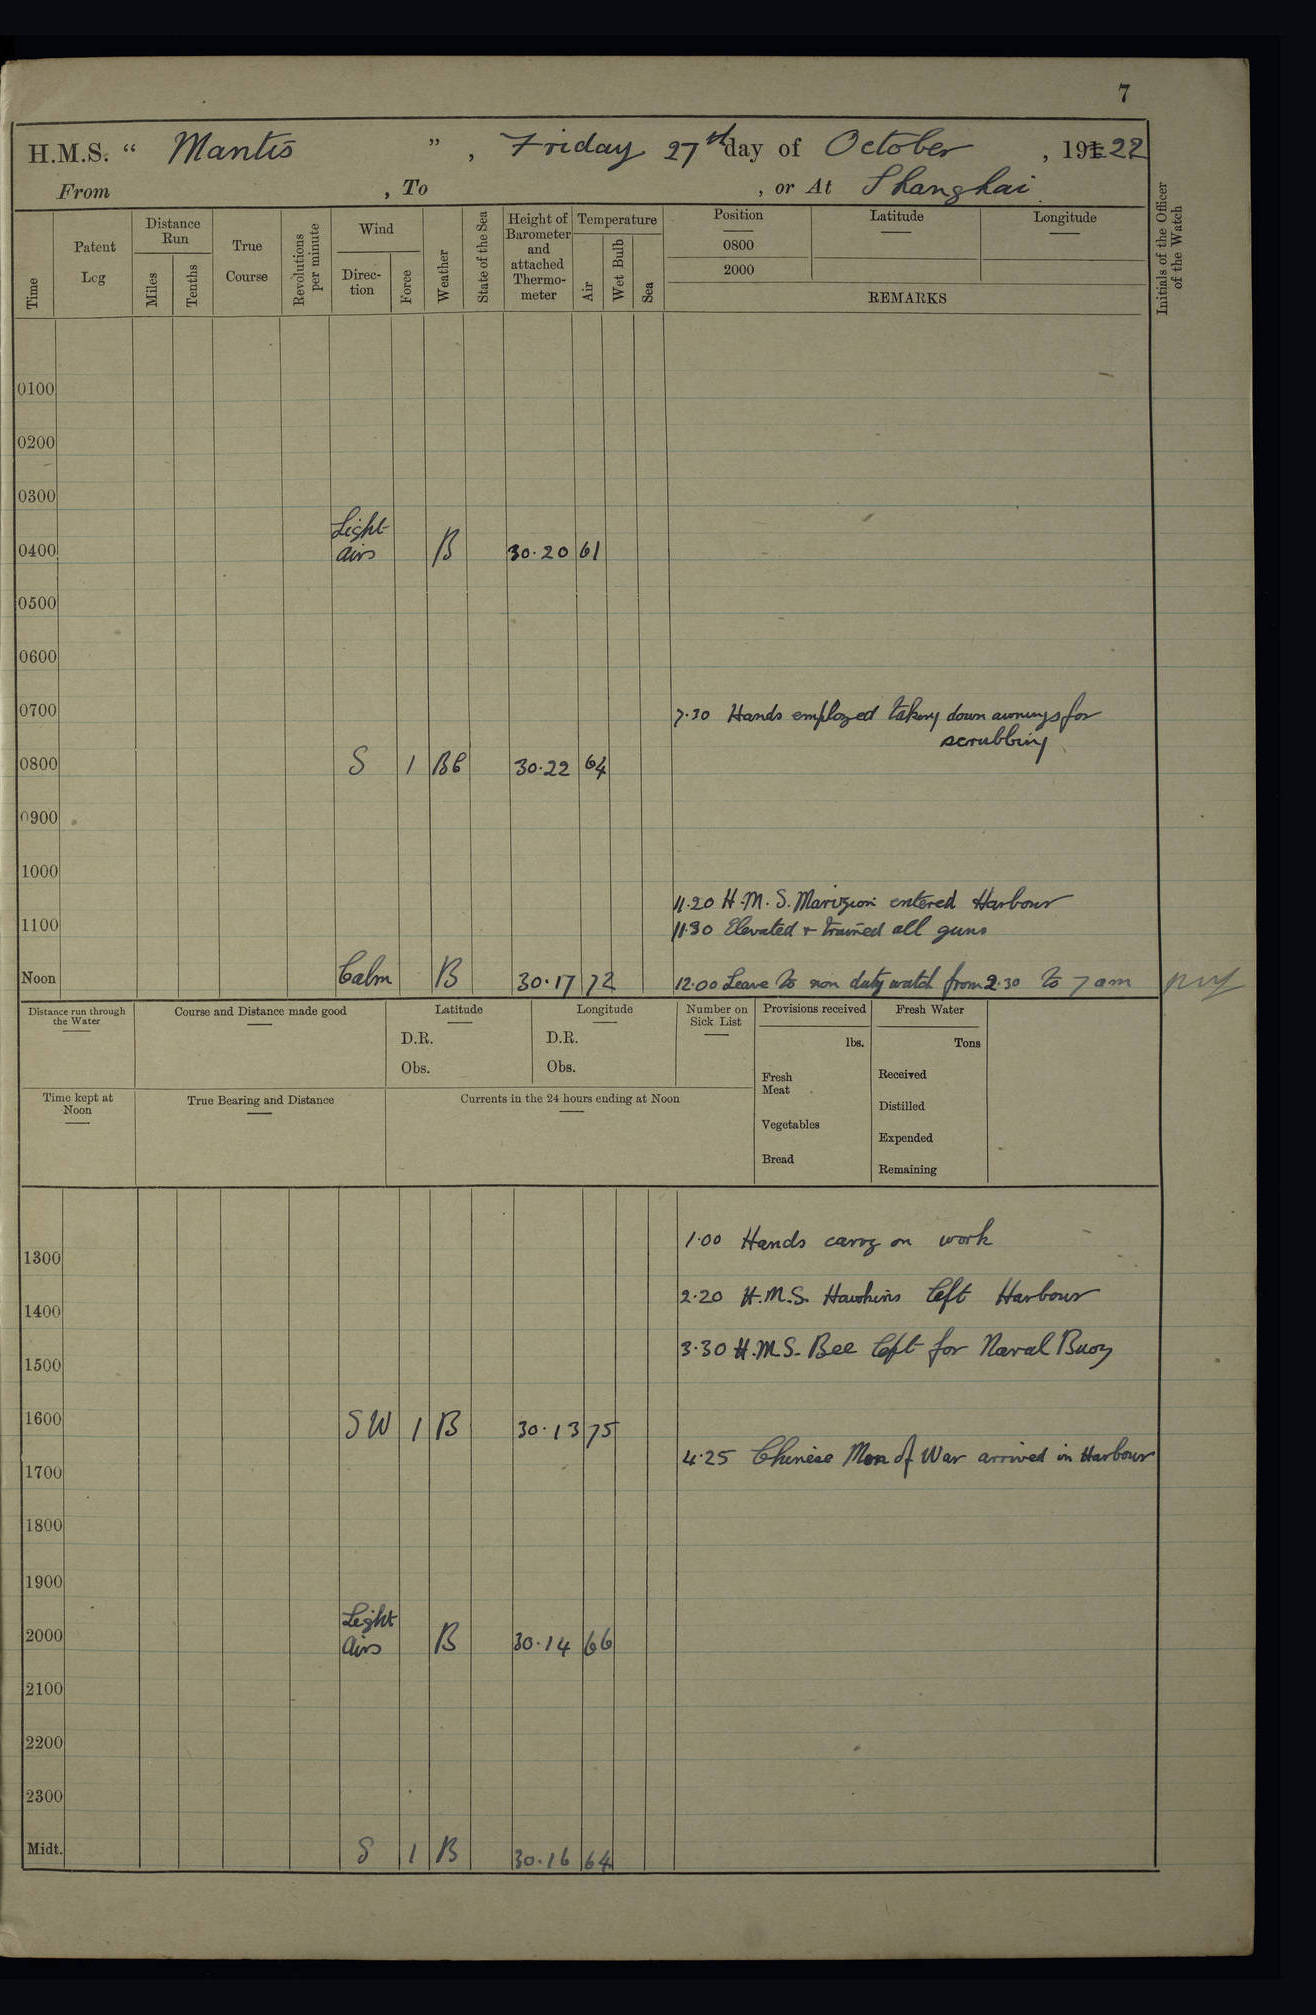 7
H.M.S. “ Mantis ” , Friday 27th day of October , 191 22
From , To , or At Shanghai
Time
Patent Log
Distance Run
Miles
Tenths
True Course
Revolutions per minute
Wind
Direc-tion
Force
Weather
State of the Sea
Height of Barometer and attached Thermo-meter
Temperature
Air
Wet Bulb
Sea
Position
0800
2000
Latitude
Longitude
REMARKS
Initials of the Officer of the Watch
0100
0200
0300
Light
0400 airs B 30.20 61
0500
0600
0700 7.30 Hands employed taking down awnings for
scrubbing
0800 S 1 BC 30.22 64
0900
1000
11.20 H.M.S. Marizion entered Harbour
1100 11.30 Elevated + trained all guns
Noon Calm B 30.17 72 12.00 Leave to non duty watch from 2.30 to 7 am
Distance run through the Water
Course and Distance made good
Latitude
D.R.
Obs.
Longitude
D.R.
Obs.
Number on Sick List
Provisions received
lbs.
Fresh Meat
Vegetables
Bread
Fresh Water
Tons
Received
Distilled
Expended
Remaining
Time kept at Noon
True Bearing and Distance
Currents in the 24 hours ending at Noon
1300 1.00 Hands carry on work
1400 2.20 H.M.S. Hawkins left Harbour
1500 3.30 H.M.S. Bee left for Naval Buoy
1600 SW 1 B 30.13 75
1700 4.25 Chinese Man of War arrived in Harbour
1800
1900
Light
2000 airs B 30.14 66
2100
2200
2300
Midt. S 1 B 30.16 64